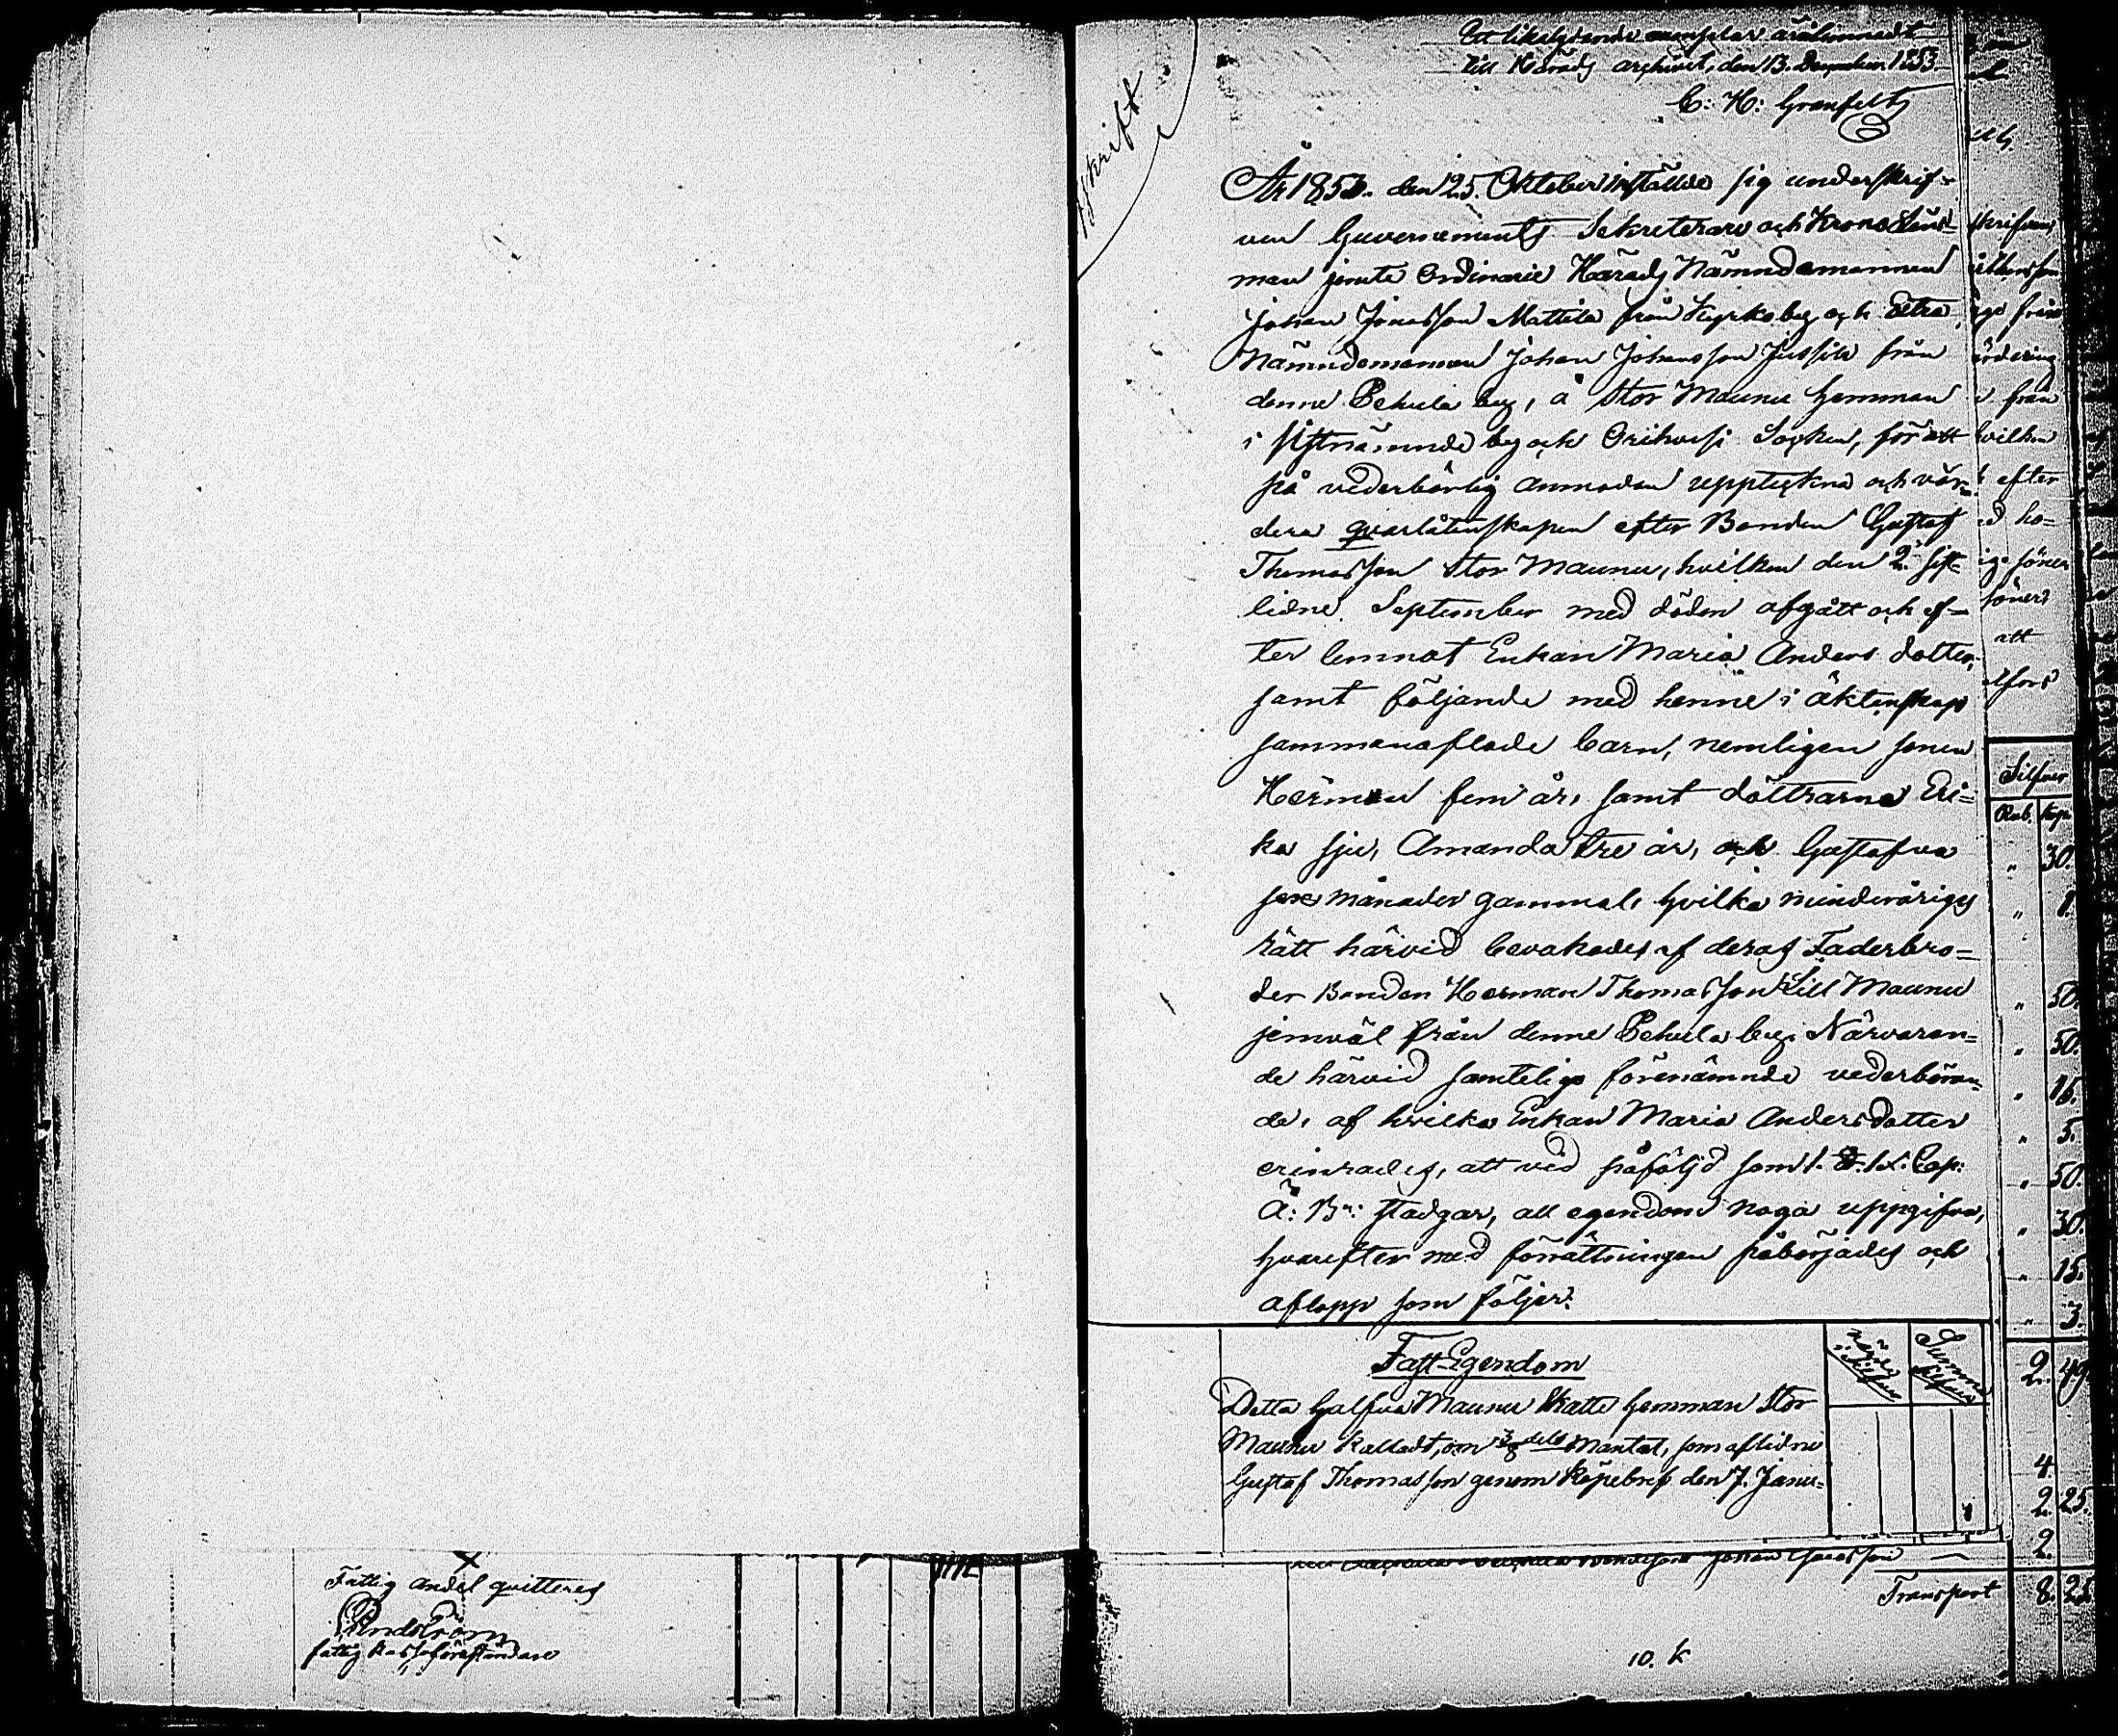 Ett likalydande exemplar är inlemnadt
till Härads archivet, den 13. December 1853
C: H: Granfelt
Afskrift
År 1853. den 25. Oktober inställde sig underskrif-
ven Guvernements Sekreterare och Krono Läns-
man jemte Ordinarie Härads Nämndemannen
Johan Jonasson Mattila från Kyrkoby och Extra
Nämndemannen Johan Johansson Jussila från
denne Pehula by, å Stor Maunu hemman
i sistnämnde by och Orihvesi Socken, för att
på vederbörlig anmodan uppteckna och vär-
dera qvarlåtenskapen efter Bonden Gustaf
Thomasson Stor Maunu, hvilken den 2. sist-
lidne September med döden afgått och ef-
ter lemnat Enkan Maria Anders dotter,
samt följande med henne i äktenskap
sammanaflade barn, nemligen sonen
Herman fem år, samt döttrarne Eri-
ka sju, Amanda tre år, och Gustafva
sex månader gammal, hvilka minderårigas
rätt härvid bevakades af deras Faderbro-
der Bonden Herman Thomasson Lill Maunu
jemväl från denne Pehula by. Närvaran-
de härvid samtelige förenämnde vederböran-
de, af hvilka Enkan Maria Andersdotter
erinrades, att vid påföljd som 1. §. 1x. Cap:
Ä: B: stadgar, all egendom noga uppgifva,
hvarefter med förrättningen påbörjades och
aflopp som följer:
Fast Egendom
Detta halfva Maunu Skatte hemman Stor
Maunu kalladt, om 3/8 dels Mantal, som aflidne
Gustaf Thomasson genom köpebref den 7. Janu-
Summa
Silfver
skrifven
från
värdering
från
hvilken
efter
ho-
söner
söner
att
Silfver
Rub. Kop
" 30.
" 1.
" 50.
" 50.
" 15.
" 5.
" 50.
" 30.
" 15.
" 3.
2. 49
4.
2. 25.
2.
Johan
Transport 8. 25
10. k
X
Fattig andel quitteras
Lindström
fattig kasseföreståndare